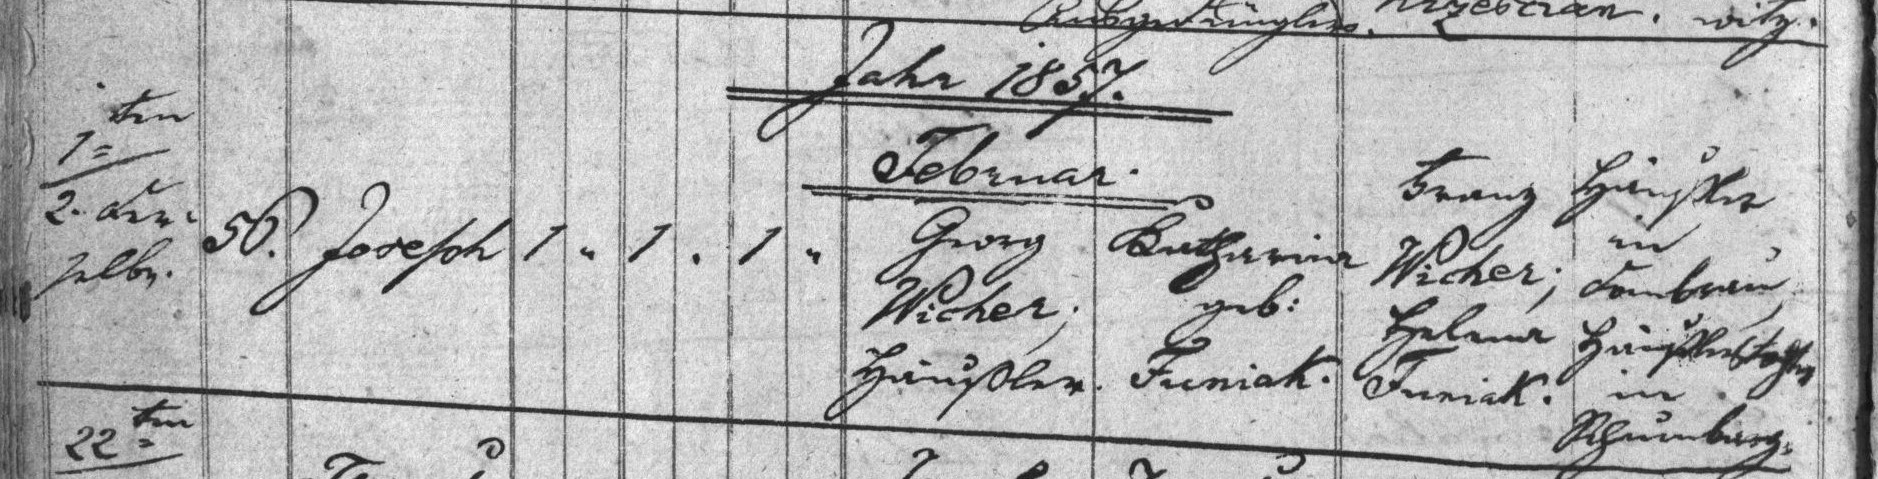 witz.
Jahr 1857.
Februar.
1 = ten
2. der-
selbe.
56. Joseph 1 " 1 . 1 "
Georg
Wicher,
Häußler.
Catharina
geb:
Funiak.
Franz
Wicher;
Helena
Funiak.
Häußler
in
Dombrau,
Häußlerstochter
in
Schumbarg.
22 = ten